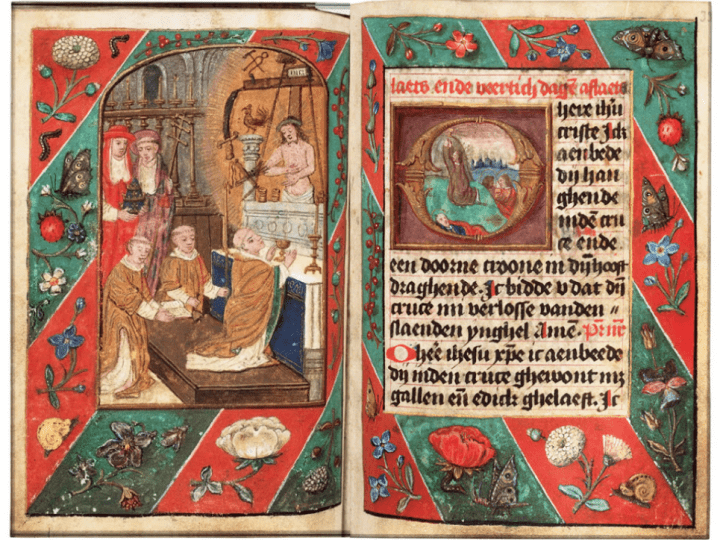 laets ende veertich dagē aflaets
O here ihū
criste Ick
aenbede
dij han
ghende
indē cru
ce ende
een doorne croone in dijn hooft
draghende. Ic bidde v dat dij
cruce mi verlosse vanden
slaenden ynghel Amē. Pr nr
O heē ihesu xpe ic aenbeede
dij inden cruce ghewont mz
gallen eñ edick ghelaest. Ic